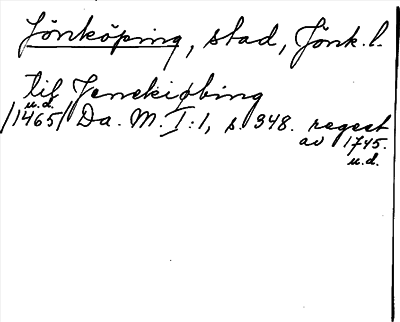 Jönköping, stad, Jönk.l.
till Jenekiøbing
u.d.
/1465/ Da. M. I:1, s. 348. regest
av 1745.
u.d.